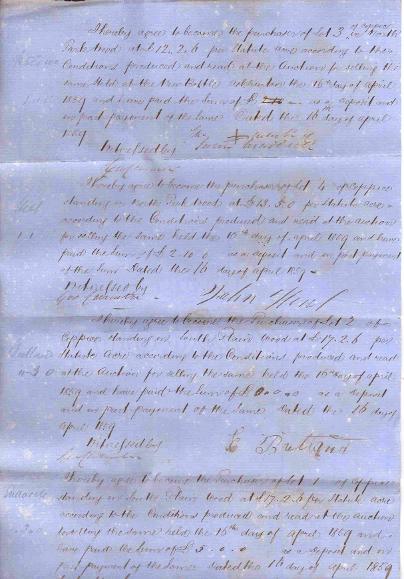 I hereby agree to become the purchaser of Lot 3 of Coppice in North
Park Wood at £12.2.6 per Statute acre according to the
Conditions produced and read at the Auction for selling the
same held at the New Bottle on the 16th day of april
1859 and have paid the Sum of £ as a deposit and
in part payment of the Same Dated the 16 day of april
1859
Witnessed by
I hereby agree to become the purchaser of Lot 4 of Coppice
standing in North Park Wood at £13.5.0 per Statute acre
according to the Conditions produced and read at the auction
for selling the same held the 16th day of april 1859 and have
paid the Sum of £ 2.10.0 as a deposit and in part payment
of the Same Dated the 16 day of april 1859
Witnessed by
John
I hereby agree to become the Purchaser of Lot 2 of
Coppice standing in South Wood at £17.2.6 per
Statute Acre according to the Conditions produced and read
at the Auction for selling the same held the 16th day of april
1859 and have paid the Sum of £ as a deposit
and in part payment of the Same Dated the 16 day of
april 1859
Witnessed by
I hereby agree to become the Purchaser of Lot 1 of Coppice
standing in South Wood at £17.2.6 per Statute acre
according to the Conditions produced and read at the Auction
for selling the same held the 16th day of april 1859 and
have paid the Sum of £ 5.0.0 as a deposit and in
part payment of the Same Dated the 16 day of april 1859